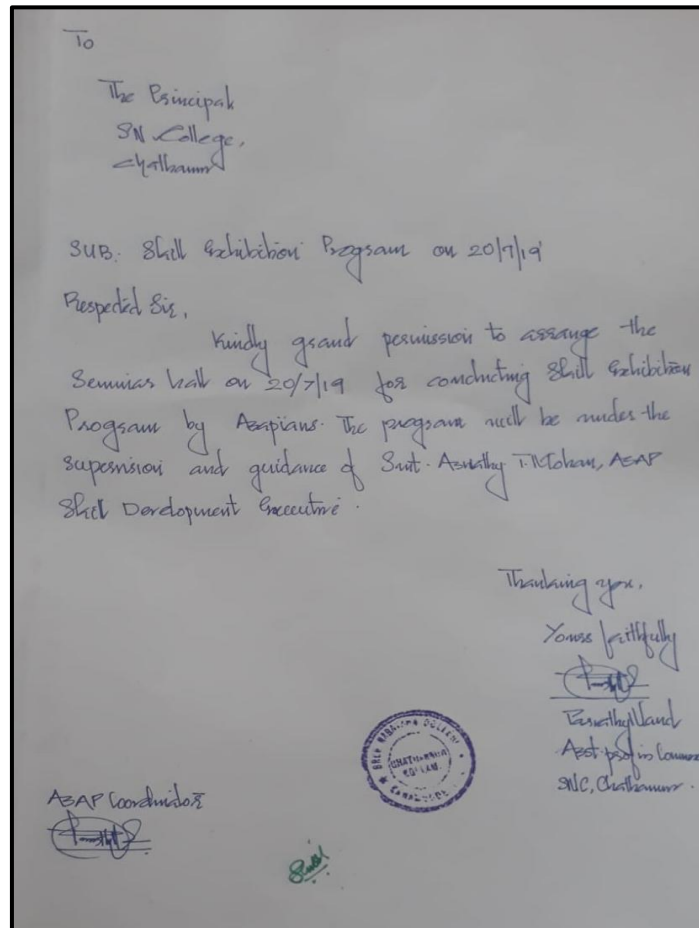 To
The Principal
SN College,
Chathannur
SUB: Skill Exhibition Program on 20/7/19
Respected Sir,
Kindly grand permission to arrange the
Seminar hall on 20/7/19 for conducting Skill Exhibition
Program by Asapians. The program will be under the
supervision and guidance of Smt. Aswathy T. Mohan, ASAP
Skill Development Executive.
Thanking you,
Yours faithfully
Asst. prof in
SNC, Chathannur.
SREE NARAYANA COLLEGE
CHATHANNUR
KOLLAM
ASAP Coordinator